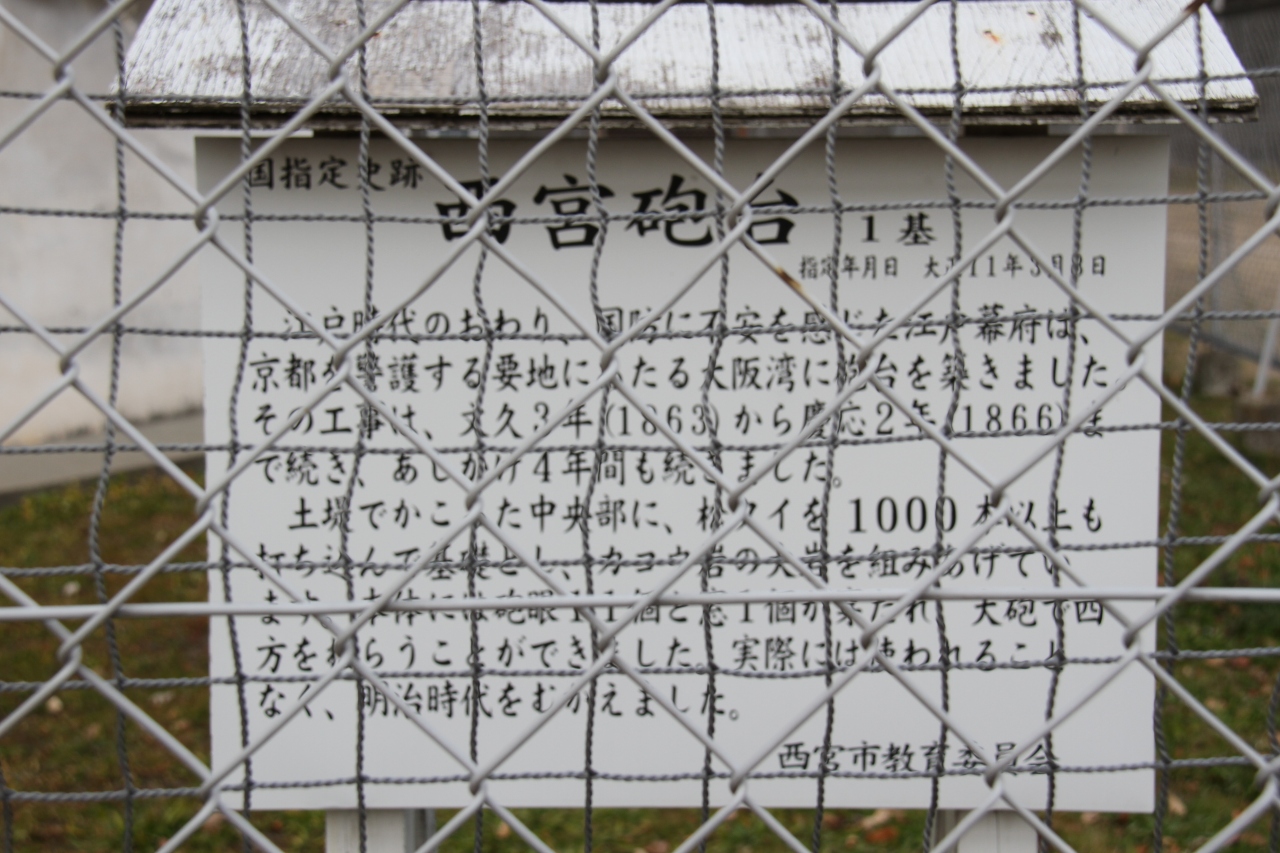 国指定史跡
西宮砲台 1基
指定年月日 大正11年3月8日
江戸時代のおわり、国防に不安を感じた江戸幕府は、
京都を警護する要地にあたる大阪湾に砲台を築きました。
その工事は、文久3年(1863)から慶応2年(1866)ま
で続き、あしかけ4年間も続きました。
土堤でかこった中央部に、松クイを1000本以上も
打ち込んで基礎とし、カコウ岩の大岩を組みあげてい
ます。本体には砲眼11個と窓1個が築かれ、大砲で四
方をねらうことができました。実際には使われること
なく、明治時代をむかえました。
西宮市教育委員会